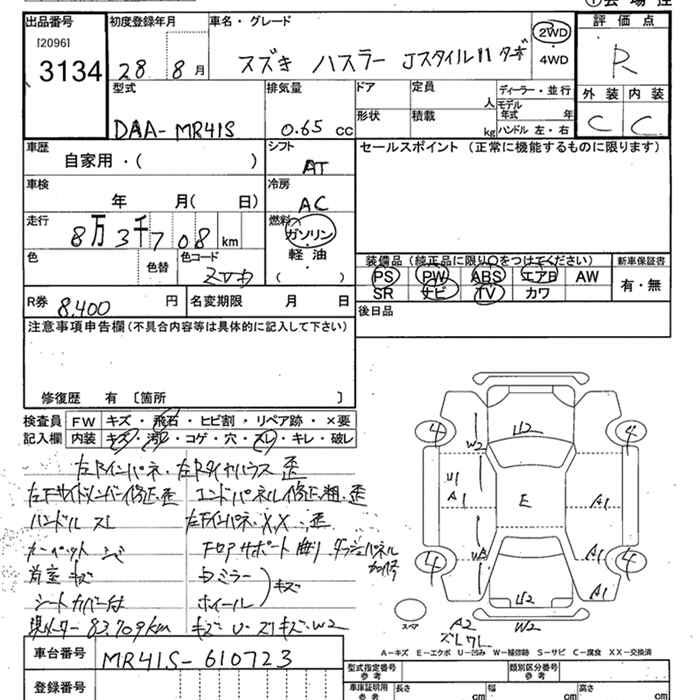 出品番号 初度登録年月 車名・グレード 評価点
[2096] 3134 28 8月 スズキ ハスラー JスタイルII ターボ 2WD ・ 4WD R
型式 排気量 ドア 定員 人 ディーラー・並行 外装 内装
DAA-MR41S 0.65 cc 形状 積載 kg モデル年式 年 ハンドル 左・右 C C
車歴 シフト セールスポイント (正常に機能するものに限ります)
自家用・( ) AT
車検 冷房
年 月( 日) AC
走行 燃料
8万3千708 km ガソリン
色 色替 色コード 軽油
( )
装備品 (純正品に限り○をつけてください) 新車保証書
PS PW ABS エアB AW 有・無
SR ナビ TV カワ
R券 8,400 円 名変期限 月 日 後日品
注意事項申告欄 (不具合内容等は具体的に記入して下さい)
修復歴 有 〔箇所 〕
検査員 FW キズ・飛石・ヒビ割・リペア跡・×要
記入欄 内装 キズ・汚れ・コゲ・穴・スレ・キレ・破レ
左Rインパネ、左Rタイヤハウス 歪
左Fサイドメンバー修正、歪 エンドパネル修正、粗、歪
ハンドル スレ 左Fインパネ、XX、歪
カーペット
フロアサポート 曲り ダッシュパネル
前室 キズ Dミラー
キズ
シートカバー付 ホイール
現メーター 83,709km キズ U・スリキズ・W2
4 W2 U2 4
U1 A1 E A1
4 A1 4
U2 A1
スペア A2 W2
A-キズ E-エクボ U-凹み W-補修跡 S-サビ C-腐食 XX-交換済
車台番号 MR41S-610723
登録番号
型式指定番号 参考 類別区分番号 参考
車庫証明用 参考 長さ cm 幅 cm 高さ cm